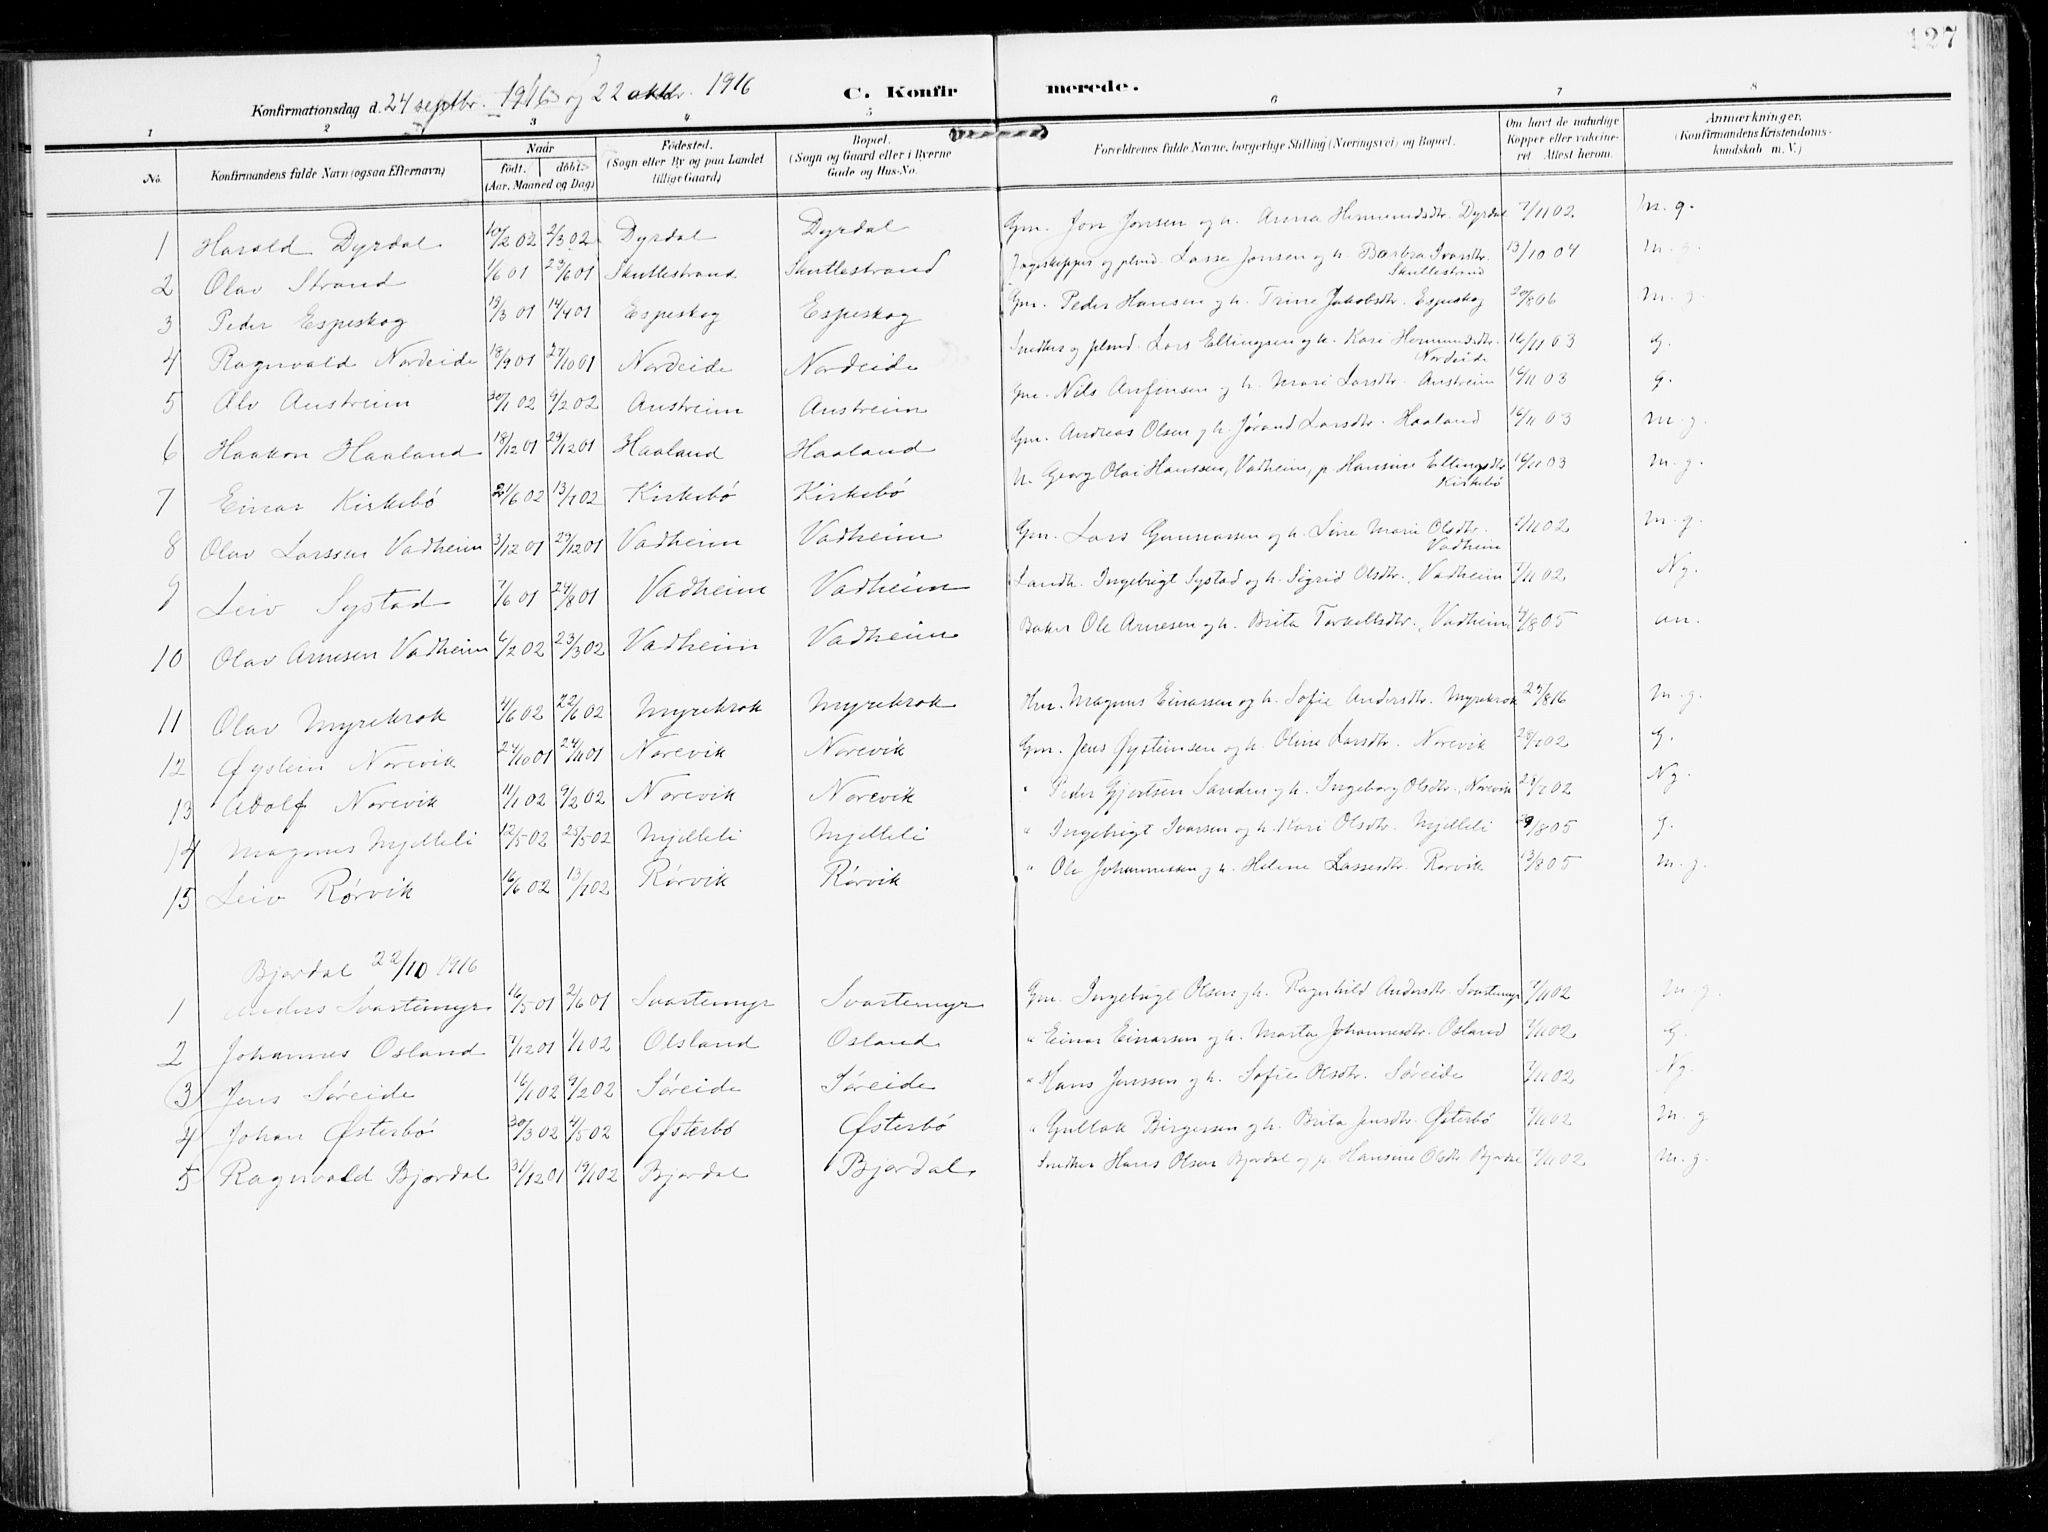 127
Konfirmationsdag d. 24 septbr. 1916 og 22 oktbr. 1916 C. Konfirmerede.
1 2 3 4 5 6 7 8
No. Konfirmandens fulde Navn (ogsaa Efternavn) Naar født. døbt. (Aar, Maaned og Dag) Fødested. (Sogn eller By og paa Landet tillige Gaard) Bopæl. (Sogn og Gaard eller i Byerne Gade og Hus-No. Forældrenes fulde Navne, borgerlige Stilling (Næringsvei) og Bopæl. Om havt de naturlige Kopper eller vakcineret Attest herom. Anmærkninger. (Konfirmandens Kristendomskundskab m. V.)
1 Harald Dyrdal 10/2 02 2/3 02 Dyrdal Dyrdal Gm. Jon Jonsen og h. Anna Hermundsdtr. Dyrdal 7/11 02 M. g.
2 Olav Strand 1/6 01 23/6 01 Skutlestrand Skutlestrand plmd. Lasse Jonsen og h. Barbra Ivarsdtr. Skutlestrand 13/10 04 M. g.
3 Peder Espeskog 19/3 01 14/4 01 Espeskog Espeskog Gm. Peder Hansen og h. Trine Jakobsdtr. Espeskog 20/8 06 M. g.
4 Ragnvald Nordeide 18/9 01 27/10 01 Nordeide Nordeide Snedker og plmd. Lars Ellingsen og h. Kari Hermundsdtr. Nordeide 16/11 03 G.
5 Alv Austreim 30/1 02 9/2 02 Austreim Austreim Gm. Nils Anfinsen og h. Mari Larsdtr. Austreim 16/11 03 G.
6 Haakon Haaland 18/12 01 29/12 01 Haaland Haaland Gm. Andreas Olsen og h. Jørand Larsdtr. Haaland 16/11 03 M. g.
7 Einar Kirkebö 21/6 02 13/7 02 Kirkebö Kirkebö U. Georg Olai Hanssen, Vadheim, p. Hansine Ellingsdtr. Kirkebö 16/11 03 M. g.
8 Olav Larssen Vadheim 3/12 01 29/12 01 Vadheim Vadheim Gm. Lars Gunnarssen og h. Line Marie Olsdtr. Vadheim 7/11 02 M. g.
9 Leiv Systad 7/6 01 24/8 01 Vadheim Vadheim Landh. Ingebrigt Systad og h. Sigrid Olsdtr., Vadheim 7/11 02 Ng.
10 Olav Arnesen Vadheim 6/2 02 23/3 02 Vadheim Vadheim Baker Ole Arnesen og h. Brita Torkellsdtr., Vadheim 4/8 05 an.
11 Olav Myrekrok 4/6 02 22/6 02 Myrekrok Myrekrok Hm. Magnus Einarsen og h. Sofie Andersdtr. Myrekrok 29/8 16 M. g.
12 Øystein Norevik 24/10 01 24/11 01 Norevik Norevik Gm. Jens Øysteinsen og h. Oline Larsdtr. Norevik 28/7 02 G.
13 Adolf Norevik 11/1 02 9/2 02 Norevik Norevik " Peder Gjertsen Sanden og h. Ingeborg Olsdtr., Norevik 28/7 02 Ng.
14 Magnus Mjelleli 12/5 02 25/5 02 Mjelleli Mjelleli " Ingebrigt Ivarsen og h. Kari Olsdtr. Mjelleli 29/8 05 G.
15 Leiv Rørvik 16/6 02 13/7 02 Rørvik Rørvik " Ole Johannessen og h. Helene Lassesdtr. Rørvik 13/8 05 M. g.
Bjordal 22/10 1916
1 Anders Svartemyr 16/5 01 2/6 01 Svartemyr Svartemyr Gm. Ingebrigt Olsen og h. Ragnhild Andersdtr. Svartemyr 7/11 02 M. g.
2 Johannes Osland 7/12 01 1/1 02 Olsland Osland " Einar Einarsen og h. Marta Johannesdtr. Osland 7/11 02 G.
3 Jens Søreide 16/1 02 9/2 02 Søreide Søreide " Hans Jenssen og h. Sofie Olsdtr. Søreide 7/11 02 Ng.
4 Johan Østerbö 30/3 02 4/5 02 Østerbö Østerbö " Gullak Birgersen og h. Brita Jensdtr. Østerbö 7/11 02 M. g
5 Ragnvald Bjordal 31/12 01 19/1 02 Bjordal Bjordal Snedker Hans Olsen Bjordal og p. Hansine Olsdtr. Bjordal 7/11 02 M. g.